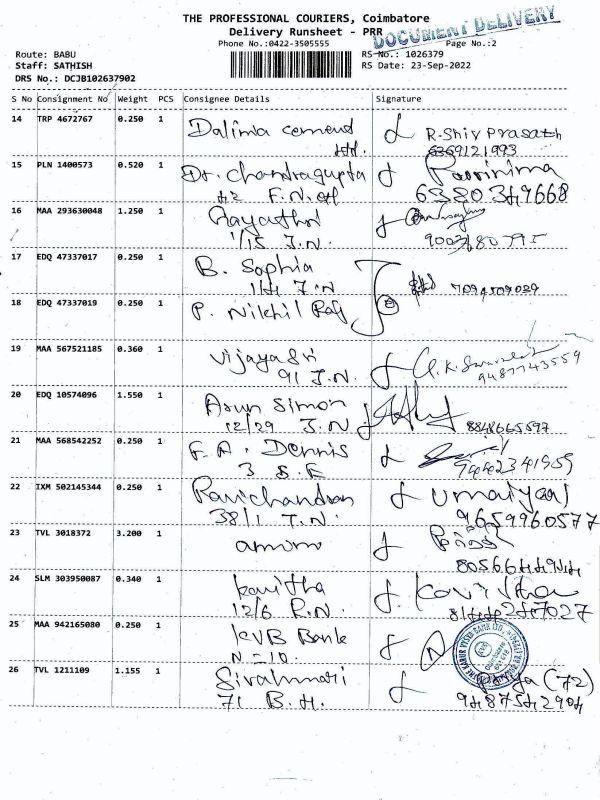 THE PROFESSIONAL COURIERS, Coimbatore
Delivery Runsheet - PRR
DOCUMENT DELIVERY
Phone No.:0422-3505555
Page No.:2
Route: BABU
RS No.: 1026379
Staff: SATHISH
RS Date: 23-Sep-2022
DRS No.: DCJB102637902
S No Consignment No Weight PCS Consignee Details Signature
14 TRP 4672767 0.250 1 Dalima cement R-Shiv Prasath
ltd. 6369121993
15 PLN 1400573 0.520 1 Dr. Chandragupta
42 F.N. 6380349668
16 MAA 293630048 1.250 1 Gayathri
1/15 J.N. 9003180795
17 EDQ 47337017 0.250 1 B. Sophia
7.N 7094509039
18 EDQ 47337019 0.250 1 P. Nikhil Raj
19 MAA 567521185 0.360 1 Vijayasri
91 J.N. 9487743559
20 EDQ 10574096 1.550 1 Arun Simon
12/29 J.N 8848665597
21 MAA 568542252 0.250 1 F.A. Dennis
3 S.F 9442341959
22 IXM 502145344 0.250 1 Ravichandran umaiyaal
38/1 J.N. 9659960577
23 TVL 3018372 3.200 1
8056644944
24 SLM 303950087 0.340 1 kavitha Kavitha
12/6 R.N. 8144247027
25 MAA 942165080 0.250 1 KVB Bank
N-10.
26 TVL 1211109 1.155 1 Sivahmari (72)
71 B.H. 9487542904